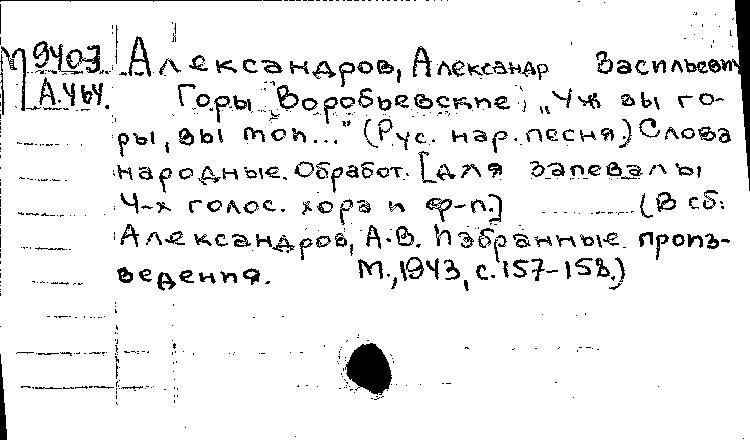 М 9403 Александров, Александр Васильевич
А.464. Горы Воробьевские; „Уж вы го-
ры, вы мои..." (Рус. нар. песня.) Слова
народные. Обработ. [для запевалы
4-х голос. хора и ф-п.] (В сб:
Александров, А.В. Избранные произ-
ведения. М., 1943, с. 157-158.)